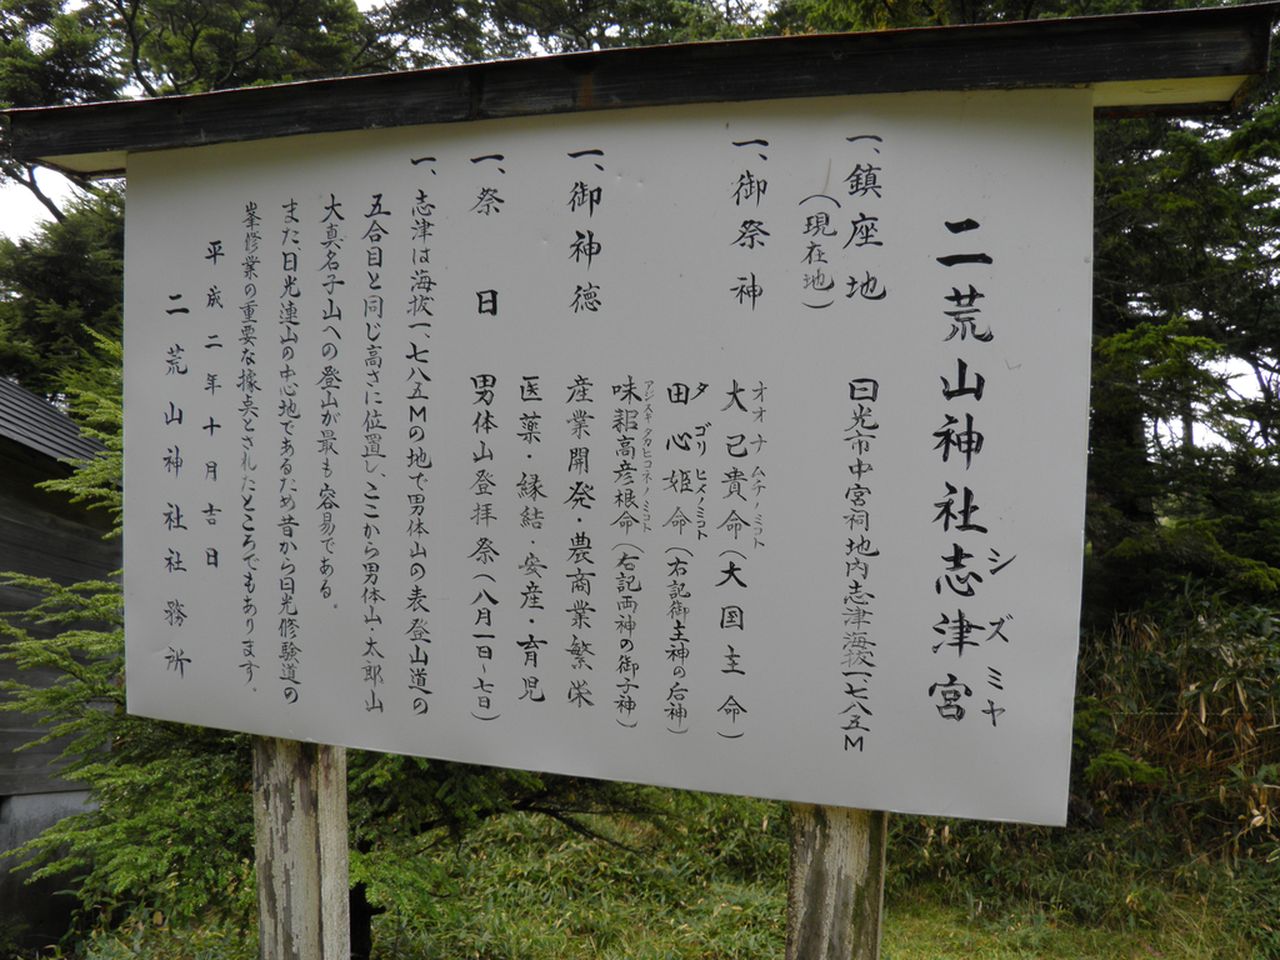 二荒山神社志津宮
シズミヤ
一、鎮座地
日光市中宮祠地内志津海抜一、七八五M
(現在地)
一、御祭神
オオナムチノミコト
大己貴命(大国主命)
タゴリヒメノミコト
田心姫命(右記御主神の后神)
アジスキタカヒコネノミコト
味耜高彦根命(右記両神の御子神)
一、御神徳
産業開発・農商業繁栄
医薬・縁結・安産・育児
一、祭日
男体山登拝祭(八月一日~七日)
一、志津は海抜一、七八五Mの地で男体山の表登山道の
五合目と同じ高さに位置し、ここから男体山・太郎山
大真名子山への登山が最も容易である。
また日光連山の中心地であるため昔から日光修験道の
峯修業の重要な據点とされたところでもあります。
平成二年十月吉日
二荒山神社社務所